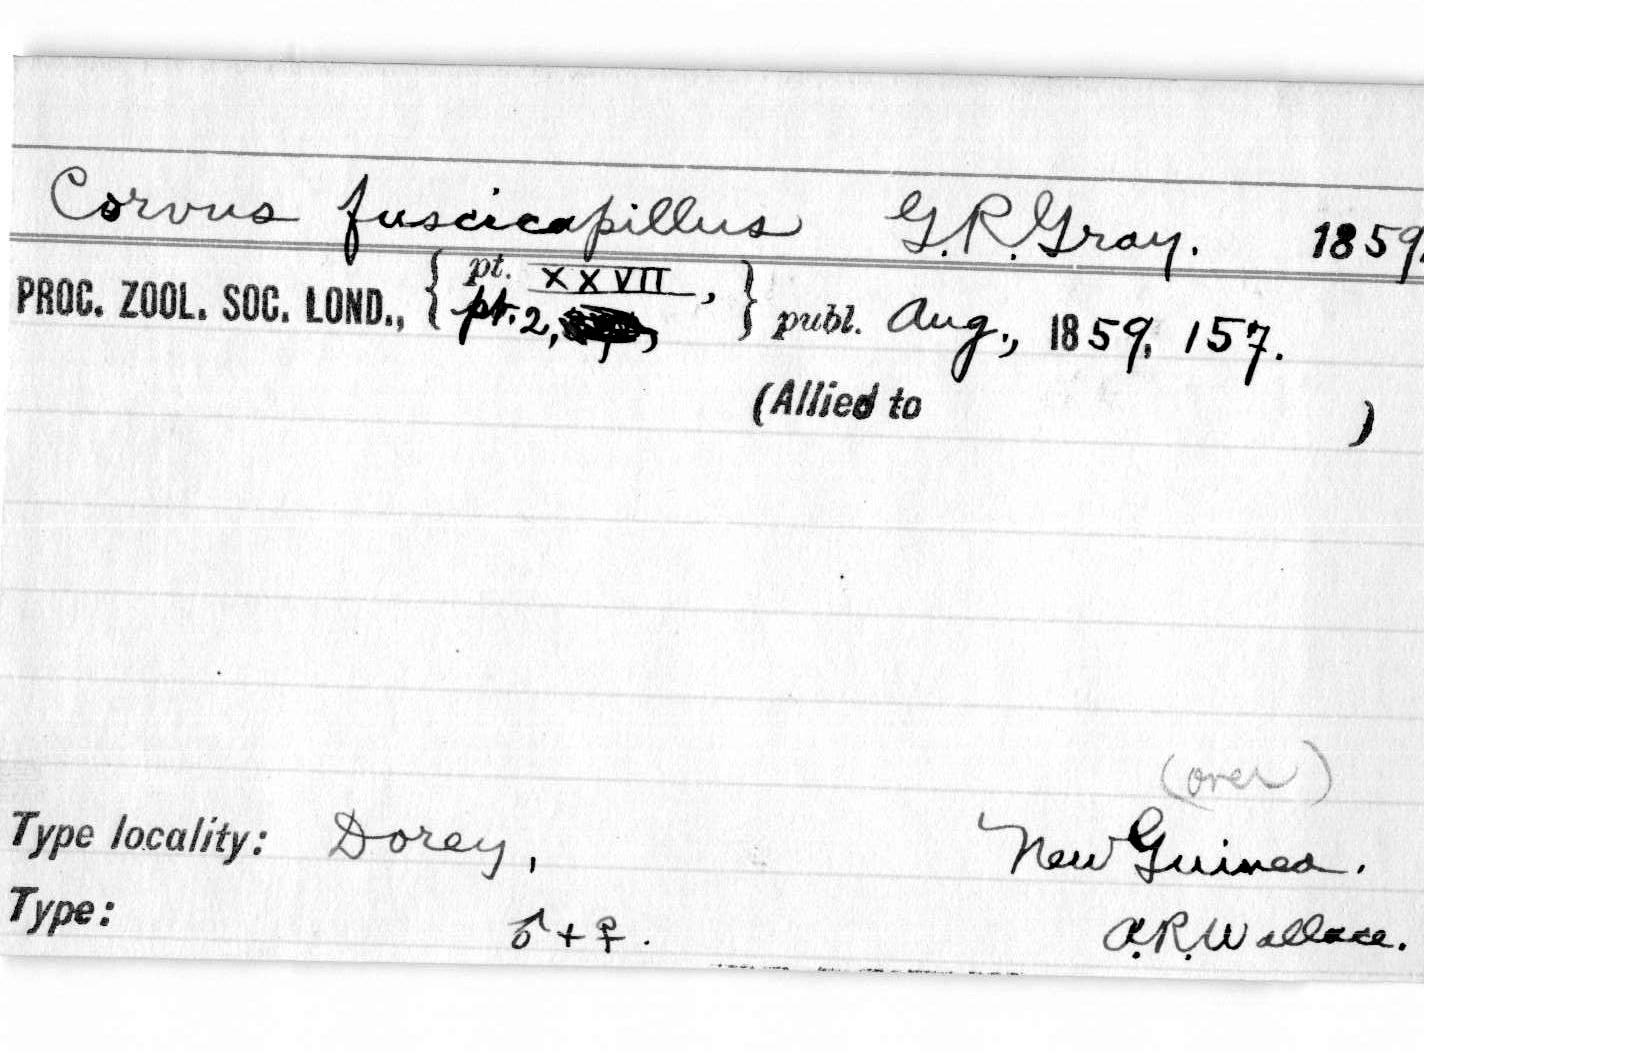 Corvus fuscicapillus G.R.Gray. 1859.
PROC. ZOOL. SOC. LOND., { pt. XXVII, pt. 2, } publ. Aug., 1859, 157.
(Allied to )
(over)
Type locality: Dorey, New Guinea.
Type: ♂ + ♀. A.R.Wallace.